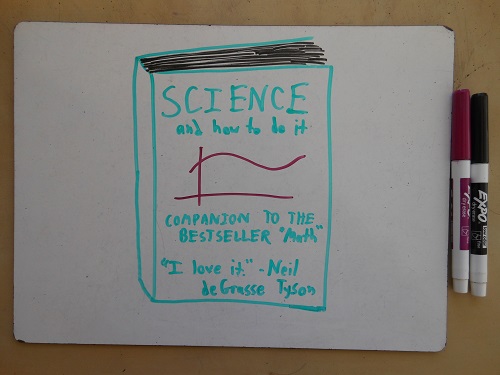 SCIENCE
and how to do it
COMPANION TO THE
BESTSELLER "Math"
"I love it." -Neil
deGrasse Tyson
EXPO
EXPO